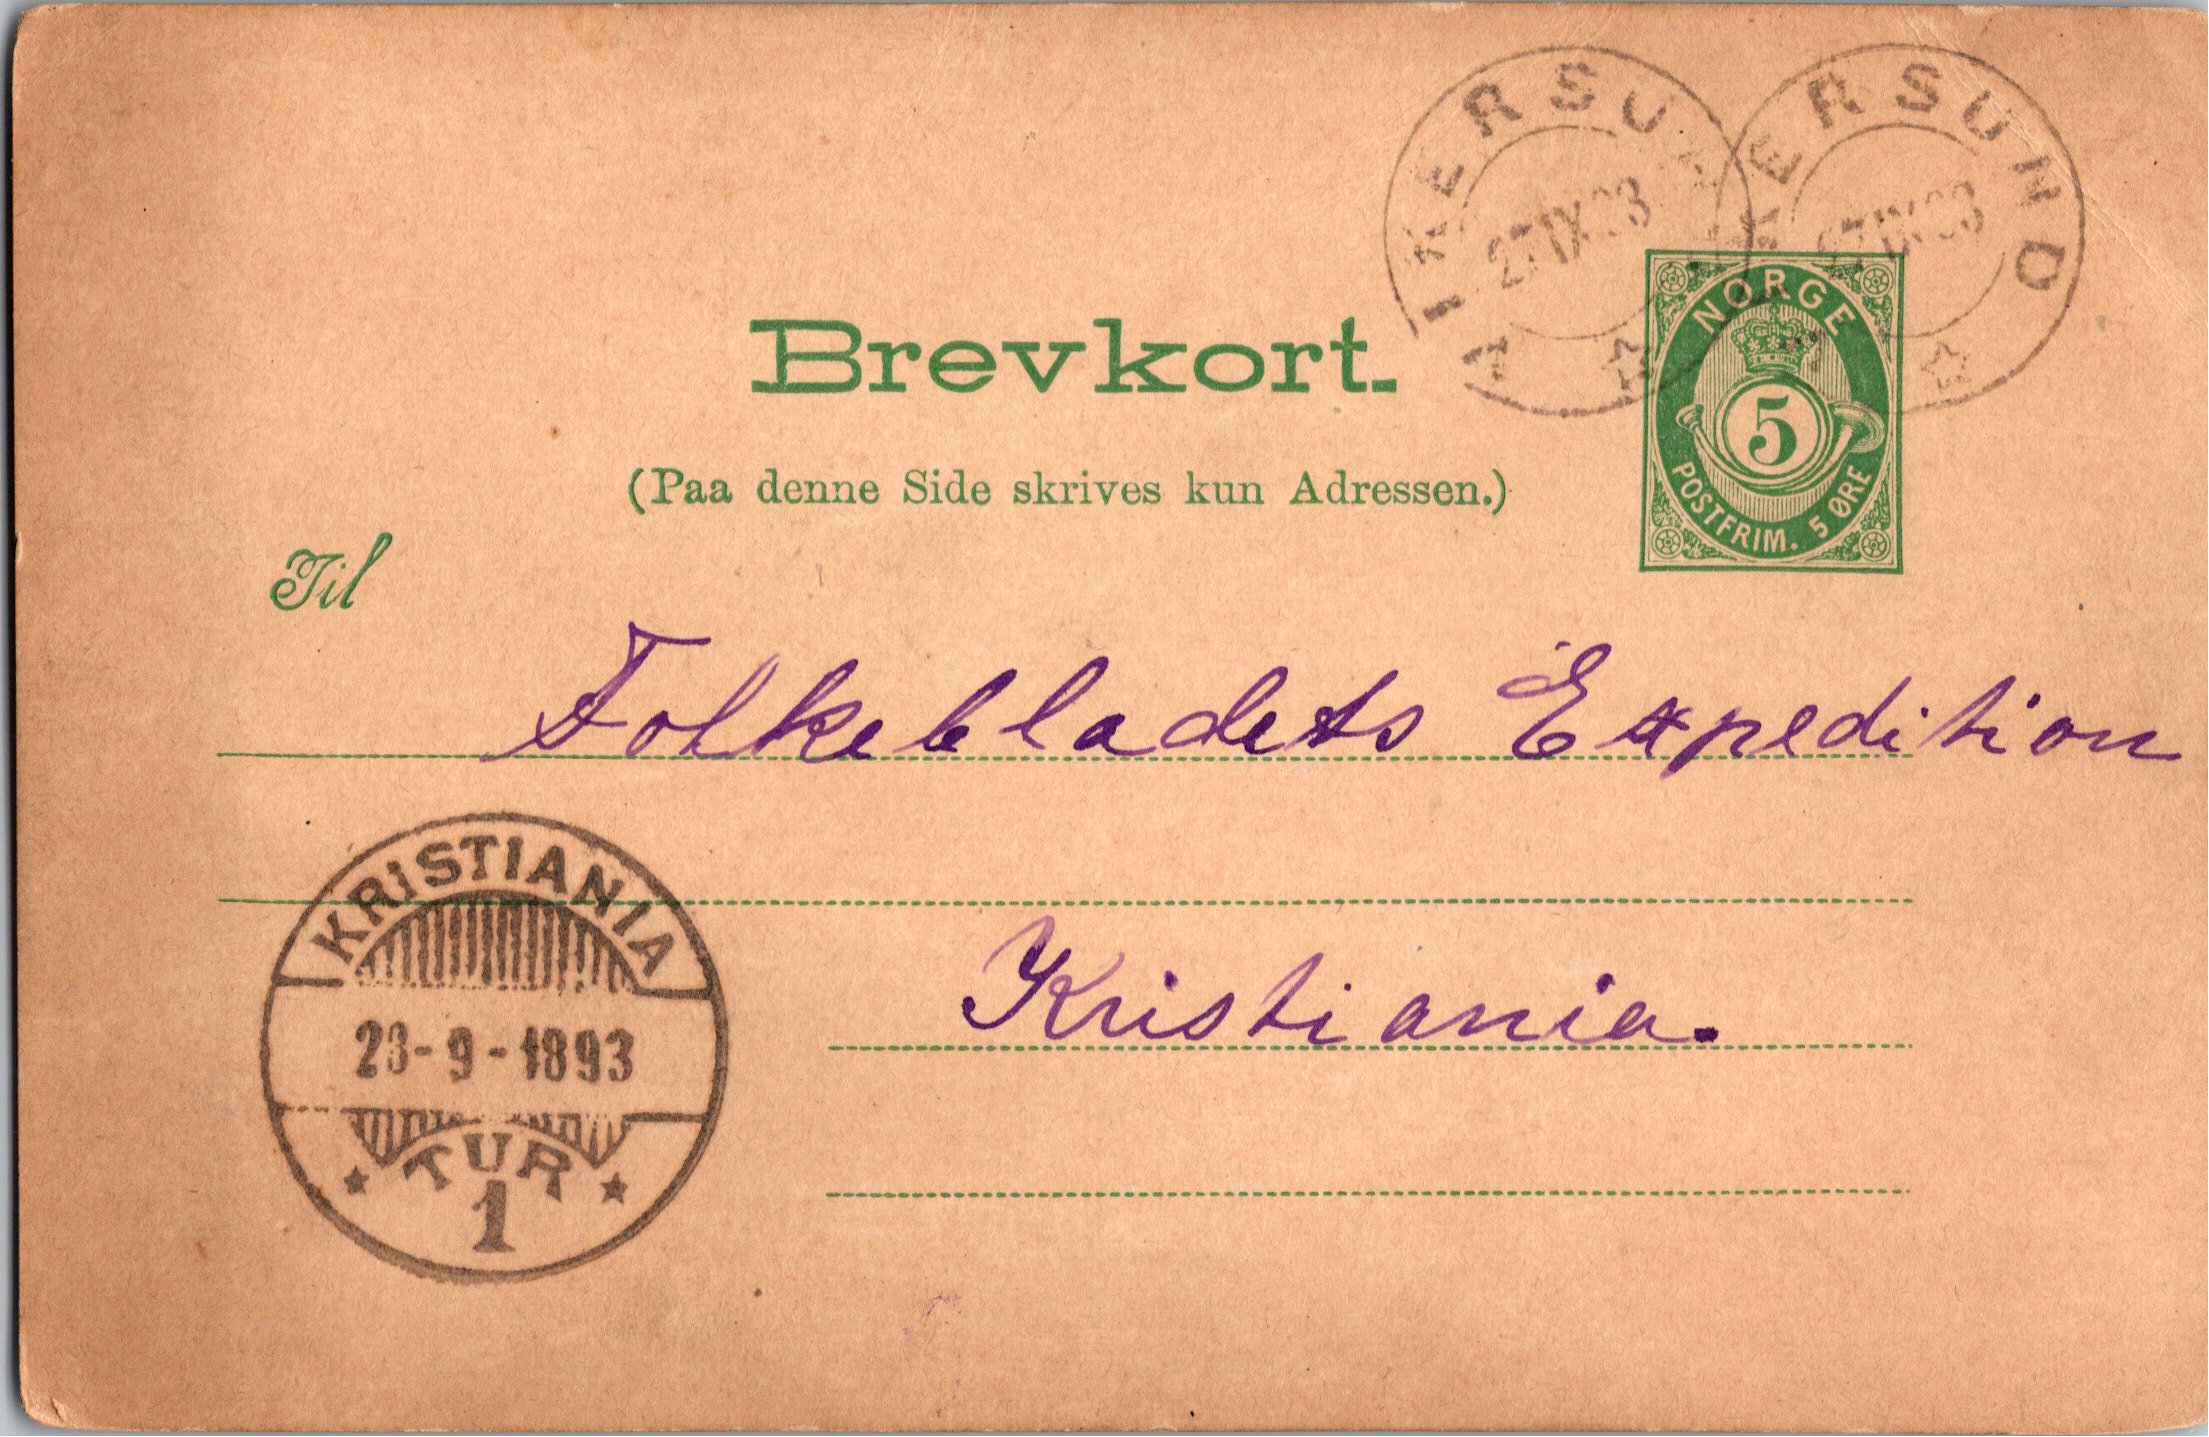 AIKERSUND
27 IX 93
KERSUND
IX 93
Brevkort.
(Paa denne Side skrives kun Adressen.)
NORGE
5
POSTFRIM. 5 ØRE
Til
Folkebladets Expedition
Kristiania.
KRISTIANIA
28-9-1893
TUR
1